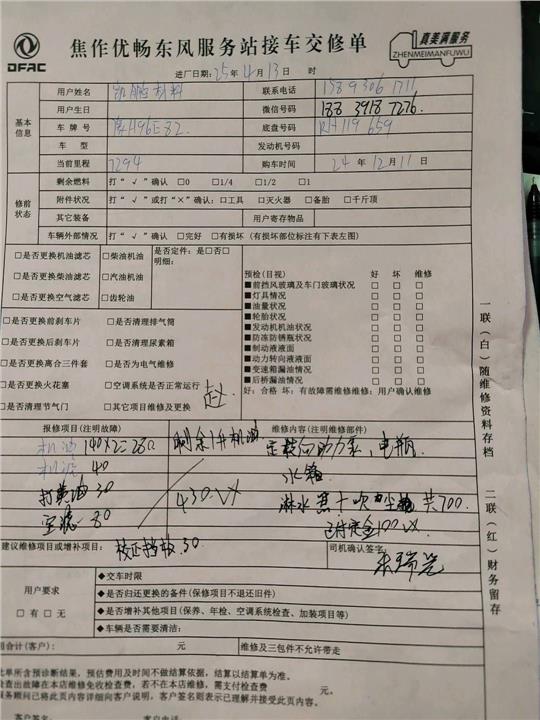 DFAC
焦作优畅东风服务站接车交修单
真美满服务
ZHENMEIMANFUWU
进厂日期: 25年4月13日 时
基本信息
用户姓名 凯鹏材料 联系电话
用户生日 微信号码 188 3918 7276.
车牌号 底盘号码 RH119659
车型 发动机号码
当前里程 7294 购车时间 24年12月11日
修前状态
剩余燃料 打“√”确认 □0 □1/4 □1/2 □1
附件状况 打“√”或打“×”确认: □工具 □灭火器 □备胎 □千斤顶
其它装备 用户寄存物品
车辆外部情况 打“√”确认 □完好 □有损坏 (有损坏部位标注有下表左图)
□是否更换机油滤芯 □柴油机油 是否定件: 是□否□
明细:
□是否更换柴油滤芯 □汽油机油
□是否更换空气滤芯 □齿轮油
□是否更换前刹车片 □是否清理排气筒
□是否更换后刹车片 □是否清理尿素箱
□是否更换离合三件套 □是否为电气维修
□是否更换火花塞 □空调系统是否正常运行
□是否清理节气门 □其它项目维修及更换
预检(目视) 好 坏 维修
■前挡风玻璃及车门玻璃状况 □ □ □
■灯具情况 □ □ □
■油量状况 □ □ □
■轮胎状况 □ □ □
■发动机机油状况 □ □ □
■防冻防锈瓶状况 □ □ □
■制动液液面 □ □ □
■动力转向液液面 □ □ □
■变速箱漏油情况 □ □ □
■后桥漏油情况 □ □ □
好: 合格 坏: 有故障需维修维修: 用户确认维修
报修项目(注明故障) 维修内容(注明维修部件)
机油 140×2=280 剩余1升机油 定转向助力泵, 电瓶
机滤 40 水箱
打黄油 30 430.VX
空滤 80 共700.
已付定金100VX
建议维修项目或增补项目: 校正挡板.30 司机确认签字:
用户要求
□有 □无
◆交车时限
◆是否归还更换的备件(保修项目不退还旧件)
◆是否增补其他项目(保养、年检、空调系统检查、加装项目等)
◆车辆是否需要清洁:
用合计(客户): 元 维修及三包件不允许带走
此单所含预诊断结果, 预估费用及时间不做结算依据, 结算以结算单为准。
检查出故障在本店维修免收检查费, 若不在本店维修, 需支付检查费 元。
服务顾问已将此页内容详细向客户说明, 客户签名则表示已理解并接受此页内容。
客户签名: 日期:
一联(白)随维修资料存档
二联(红)财务留存